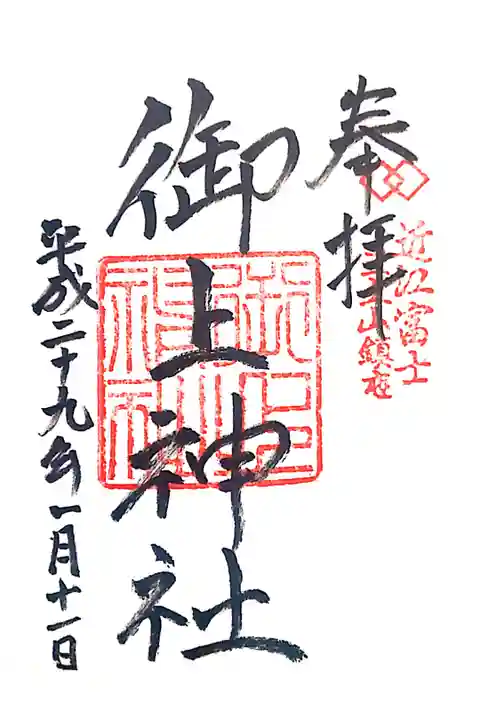 奉拝
近江富士
三上山鎮座
御上神社
御上神社
平成二十九年一月十一日